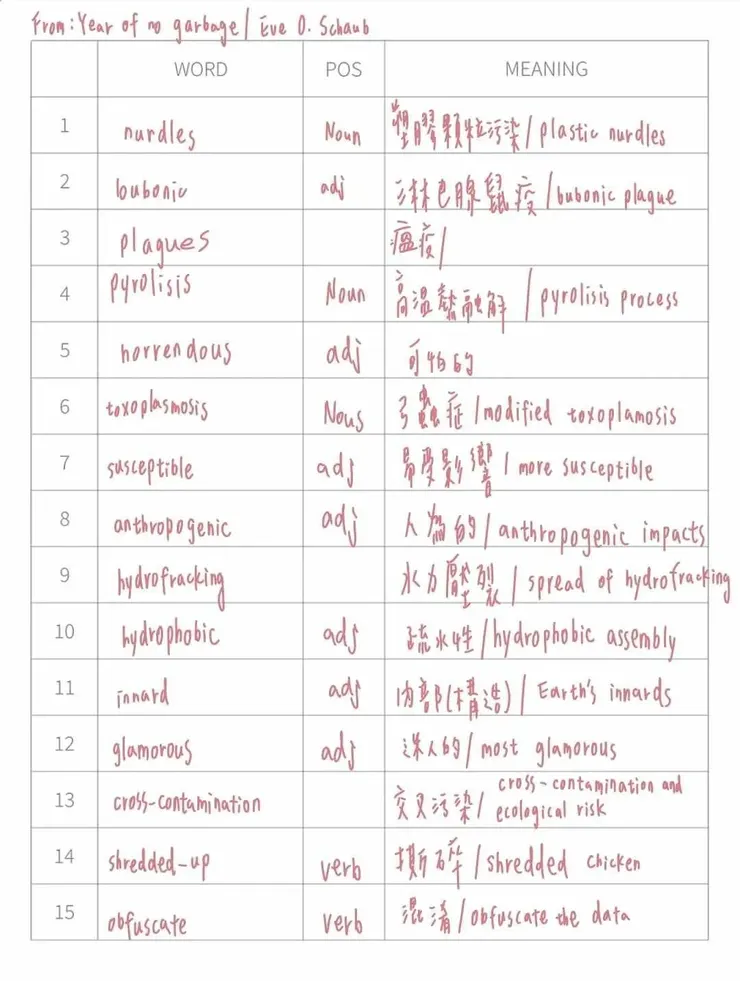 From: Year of no garbage / Eve O. Schaub
WORD POS MEANING
1 nurdles Noun 塑膠顆粒污染 / plastic nurdles
2 boubonic adj 淋巴腺鼠疫 / bubonic plague
3 plagues 瘟疫 /
4 pyrolisis Noun 高溫熱融解 / pyrolisis process
5 horrendous adj 可怕的
6 toxoplasmosis Nous 弓蟲症 / modified toxoplamosis
7 susceptible adj 易受影響 / more susceptible
8 anthropogenic adj 人為的 / anthropogenic impacts
9 hydrofracking 水力壓裂 / spread of hydrofracking
10 hydrophobic adj 疏水性 / hydrophobic assembly
11 innard adj 內部(構造) / Earth's innards
12 glamorous adj 迷人的 / most glamorous
13 cross-contamination 交叉污染 / cross-contamination and
ecological risk
14 shredded-up verb 撕碎 / shredded chicken
15 obfuscate verb 混淆 / obfuscate the data